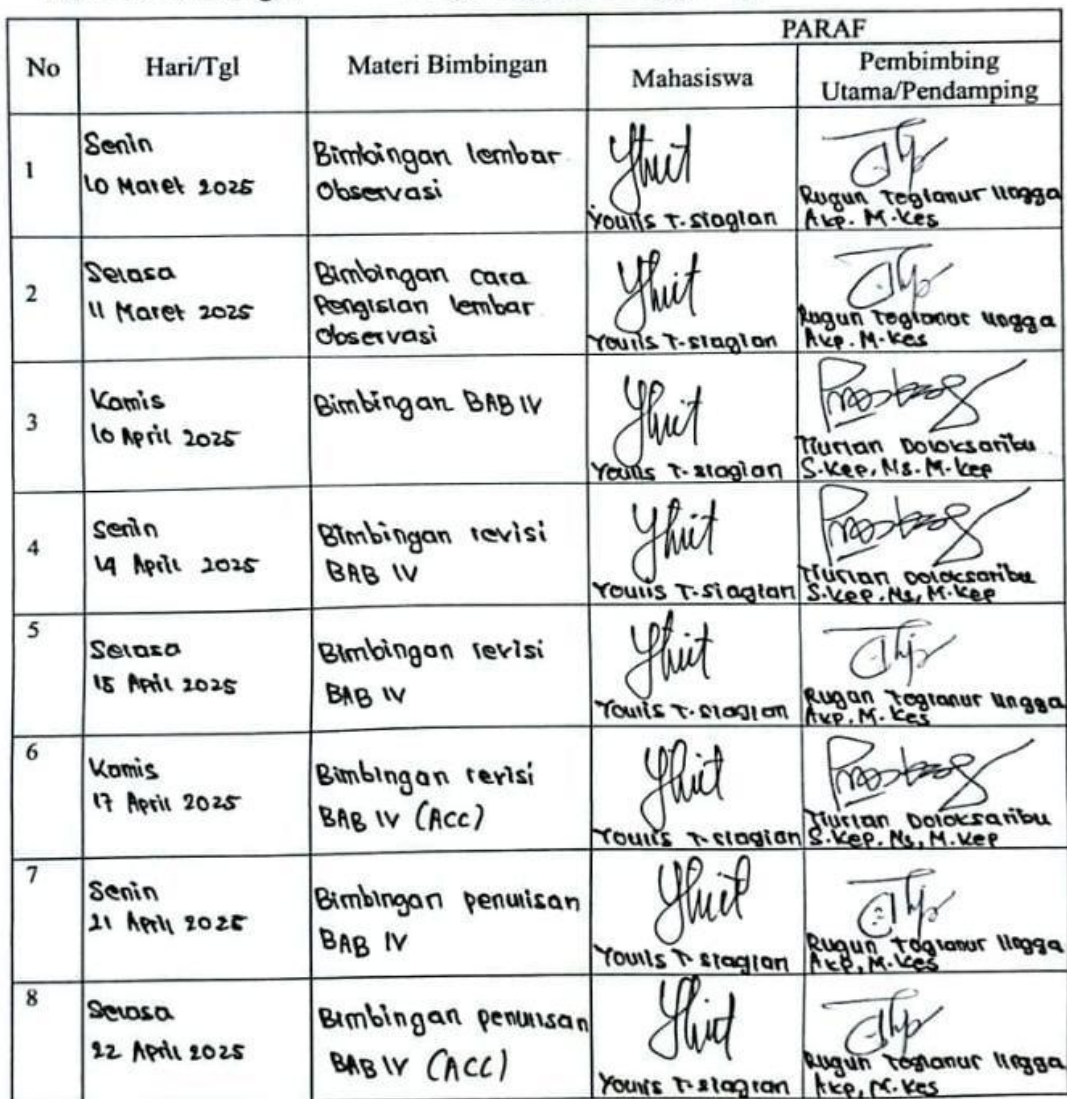 PARAF
No Hari/Tgl Materi Bimbingan Mahasiswa Pembimbing
Utama/Pendamping
1
Senin
10 Maret 2025
Bimbingan lembar
Observasi
Youlis T. Siagian
Rugun Togianur Lingga
Akp. M. Kes
2
Selasa
11 Maret 2025
Bimbingan cara
Pengisian lembar
Observasi
Youlis T. Siagian
Rugun Togianur Lingga
Akp. M. Kes
3
Kamis
10 April 2025
Bimbingan BAB IV
Youlis T. Siagian
Tiurlan Doloksaribu
S.Kep, Ns. M. Kep
4
Senin
14 April 2025
Bimbingan revisi
BAB IV
Youlis T. Siagian
Tiurlan Doloksaribu
S.Kep, Ns, M.Kep
5
Selasa
15 April 2025
Bimbingan revisi
BAB IV
Youlis T. Siagian
Rugun Togianur Lingga
Akp. M. Kes
6
Kamis
17 April 2025
Bimbingan revisi
BAB IV (Acc)
Youlis T. Siagian
Tiurlan Doloksaribu
S.Kep. Ns, M.Kep
7
Senin
21 April 2025
Bimbingan penulisan
BAB IV
Youlis T. Siagian
Rugun Togianur Lingga
Akp, M. Kes
8
Selasa
22 April 2025
Bimbingan penulisan
BAB IV (ACC)
Youlis T. Siagian
Rugun Togianur Lingga
Akp, M. Kes